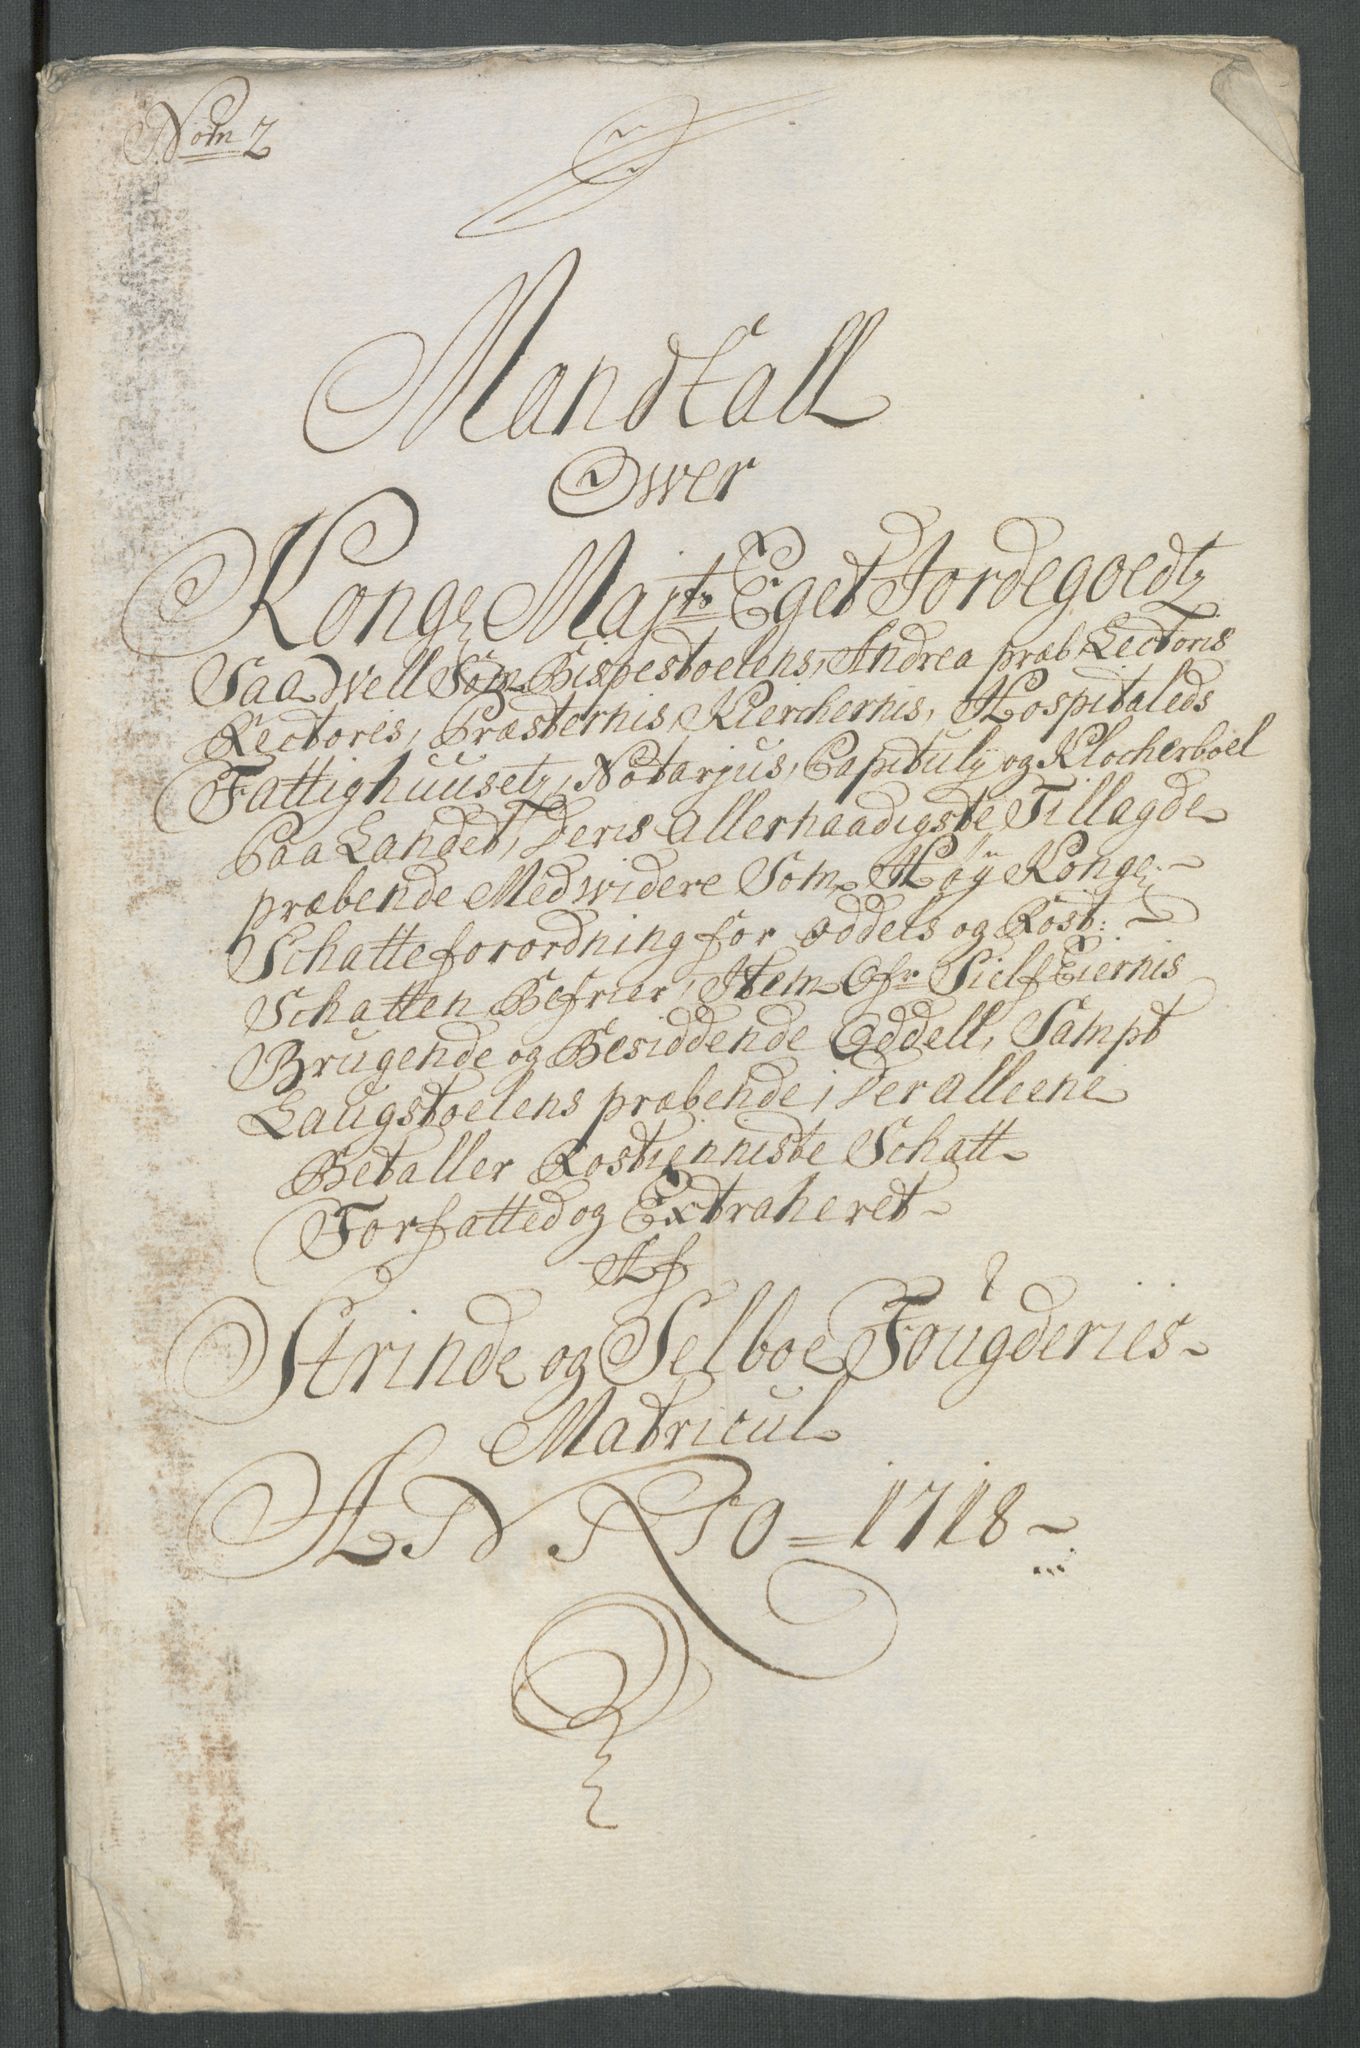 Nom 2
Mandtall
Ower
Kong: Majts Eget Jordegoedtz
Saa Well Som Bispestoelens, Andrea præb: Lectoris
Rectores, Præsternis, Kierchernis, Hospitaleds
Fattighuusetz, Notarjus, Capitulj og Klocherboel
Paa Landet, deris Allernaadigste Tillagde
præbende Medwidere Som Høy Konge:
Schatteforordning for oddels og Rost:
Schatten Befrier, Item Ofr Sielf Eiernis
Brugende og Besiddende Oddell, Sampt
Laugstoelens præbende, der alleene
Betaller Rostienniste Schatt
Forfatted og Extraheret
Af
Strinde og Selboe Fougderies
Matricul
ANNO = 1718